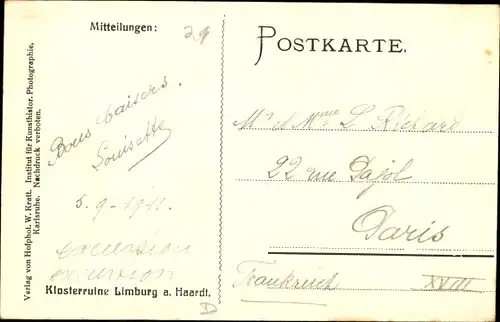 Mitteilungen:
29
POSTKARTE.
Bons baisers.
Louisette
5.9-1911.
excursion
excursion
Klosterruine Limburg a. Haardt.
D
Verlag von Hofphot. W. Kratt. Institut für Kunsthistor. Photographie,
Karlsruhe. Nachdruck verboten.
Mr & Mme L Richard
22 rue Pajol
Paris
Frankreich XVIII